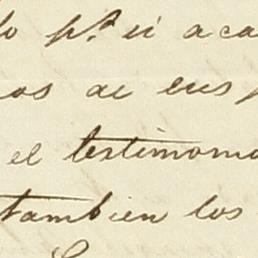 lo p.ª si aca
os de sus p
el testimonio
tambien los